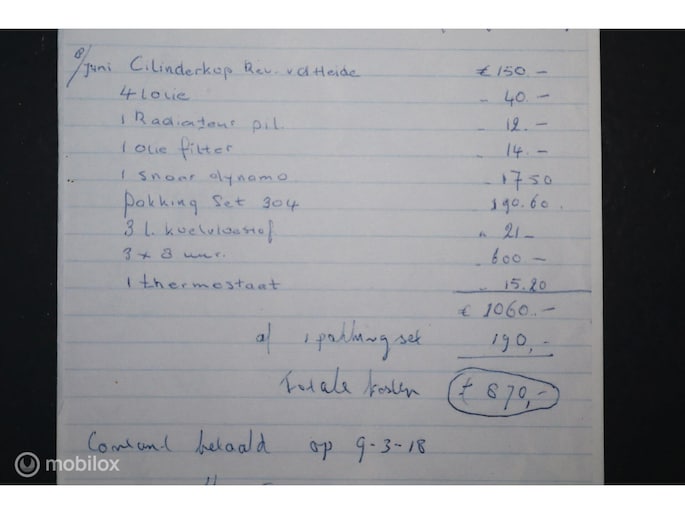 8/juni Cilinderkop Rev. v d Heide € 150.-
4 l olie " 40.-
1 Radiateur pil. " 12.-
1 olie filter " 14.-
1 snaar dynamo " 17 50
pakking Set 304 " 190.60.
3 l. koelvloeistof " 21-
3 x 8 uur. " 600-
1 thermostaat " 15.20
€ 1060.-
af 1 pakking set 190,-
Totale kosten € 870,-
Contant betaald op 9-3-18
mobilox